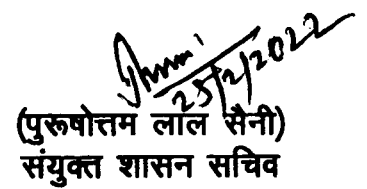 25/2/2022
(पुरूषोत्तम लाल सैनी)
संयुक्त शासन सचिव